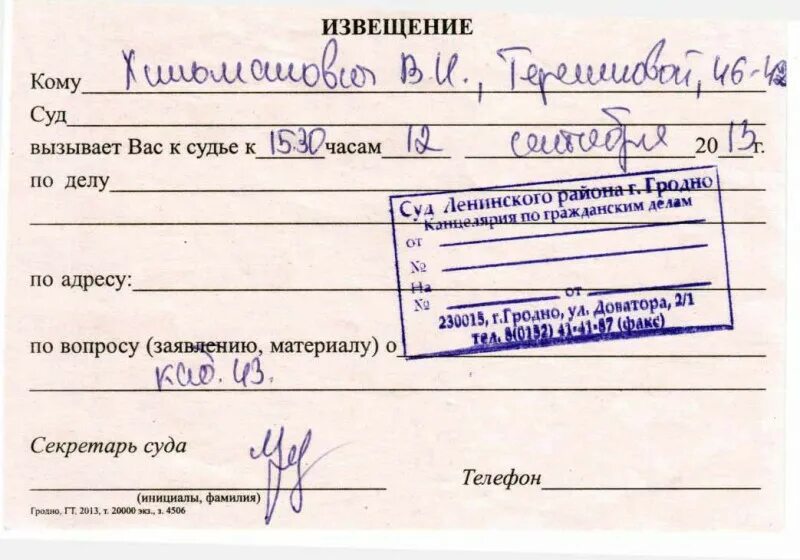 ИЗВЕЩЕНИЕ
Кому Хильманович В.И., Терешковой, 46-42
Суд
вызывает Вас к судье к 1530 часам 12 сентября 2013г.
по делу
Суд Ленинского района г. Гродно
Канцелярия по гражданским делам
от
№
по адресу:
На
№ от
230015, г.Гродно, ул. Доватора, 2/1
тел. 8(0152) 41-41-87 (факс)
по вопросу (заявлению, материалу) о
каб. 43.
Секретарь суда
Телефон
(инициалы, фамилия)
Гродно, ГТ. 2013, т. 20000 экз., з. 4506